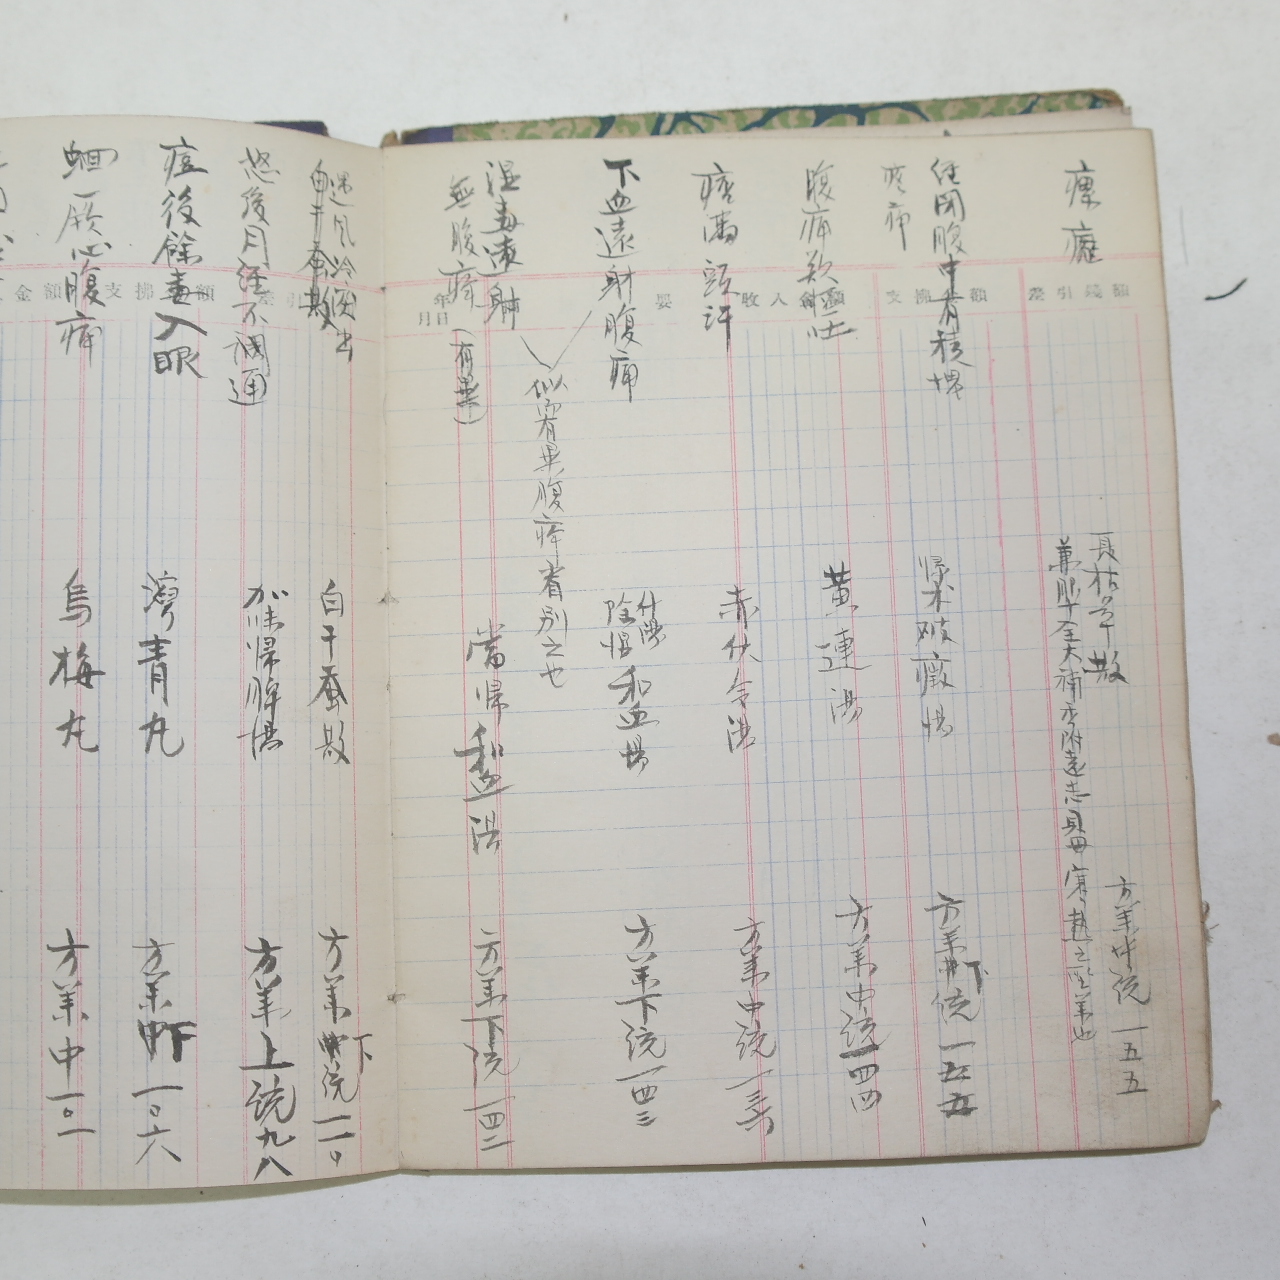 瘰癧
夏枯草散
兼服十全大補加香附遠志貝母
方美中統 一五五
經閉腹中有積塊
疼痛
歸朮破癥湯
方美下統 一五五
腹痛欲嘔吐
黃連湯
方美中統 一四四
痞滿頭汗
赤伏令湯
方美中統 一三
下血遠射腹痛
升陽除濕和血湯
方美下統 一四三
似宜有異腹痛 省別之也
濕毒遠射
無腹痛 (有異)
當歸和血湯
方美下統 一四二
遇風冷淚出
白干蚕散
白干蚕散
方美下統 一一〇
怒後月經不調通
加味歸脾湯
方美上統 九八
痘後餘毒入眼
瀉青丸
方美下 一〇六
蛔厥心腹痛
烏梅丸
方美中 一〇一
年月日
要
收入金額
支拂金額
差引殘額
金額
支拂
額
差引